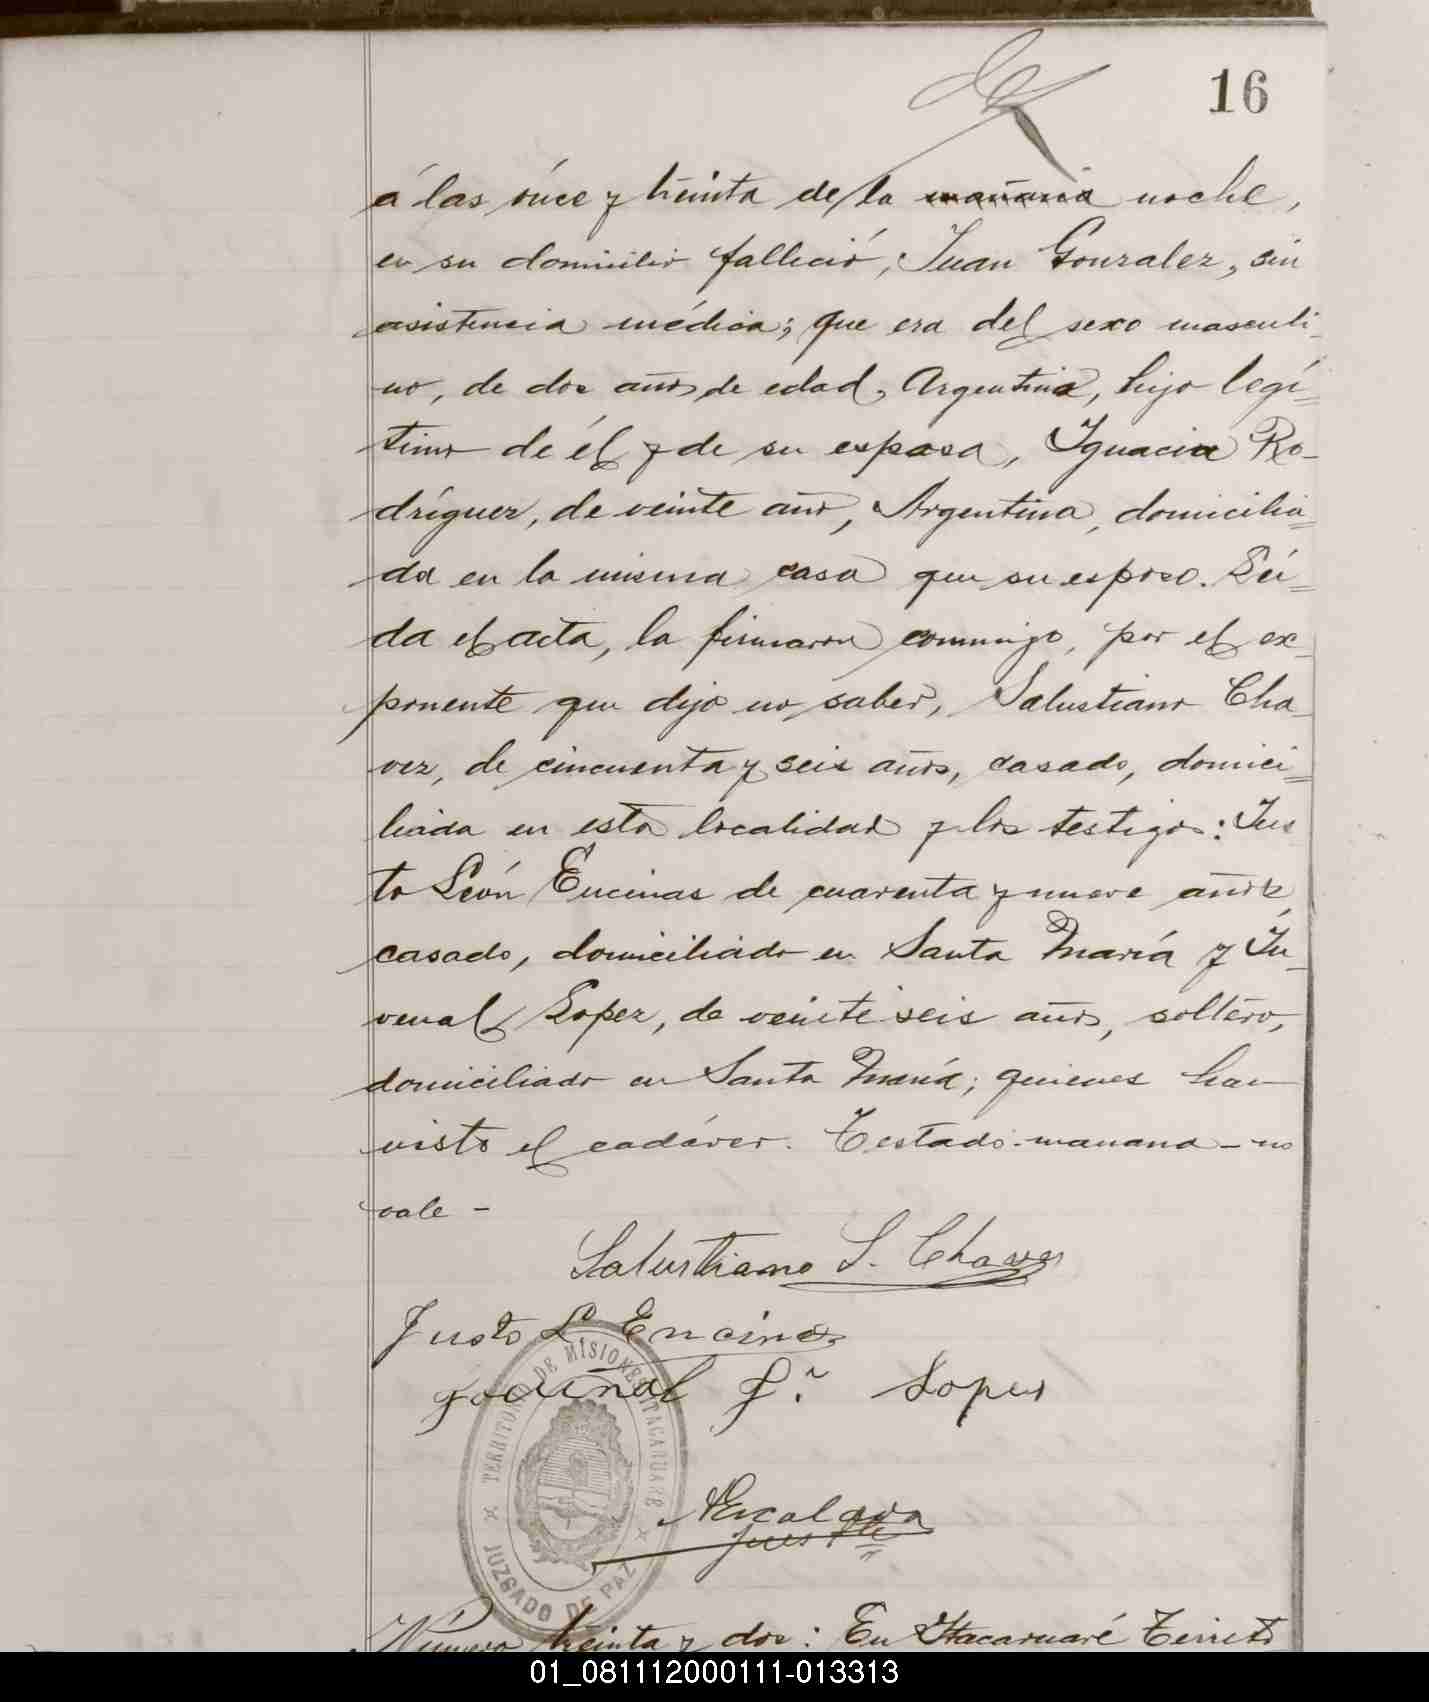 16
á las ónce y treinta de la mañana noche,
en su domicilio falleció, Juan Gonzalez, sin
asistencia médica; que era del sexo masculi-
no, de dos años de edad, Argentino, hijo legí=
timo de él y de su esposa, Ignacia Ro-
dríguez, de veinte años, Argentina, domicilia=
da en la misma casa que su esposo. Leí=
da el acta, la firmaron conmigo, por el ex-
ponente que dijo no saber, Salustiano Cha
vez, de cincuenta y seis años, casado, domici=
liado en esta localidad y los testigos: Jus
to León Encinas de cuarenta y nueve años
casado, domiciliado en Santa María y Ju-
venal Lopez, de veinte seis años, soltero,
domiciliado en Santa María; quienes han
visto el cadáver. Testado-manana-no
vale-
Salustiano S. Chavez
Justo L. Encinas
Lopez
TERRITORIO DE MISIONES ITACARUARE
JUZGADO DE PAZ
Escalada
Número treinta y dos: En Itacaruaré Territo
01_081112000111-013313